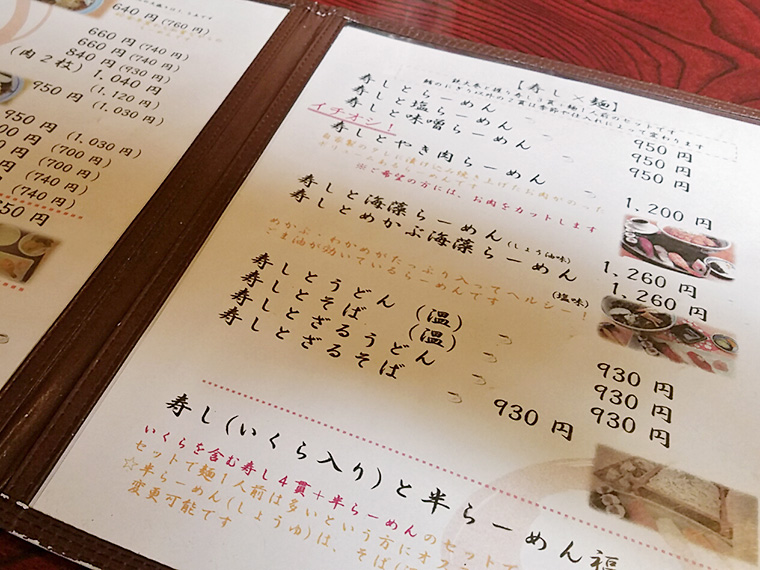 640 円 (760 円)
660 円 (740 円)
660 円 (740 円)
840 円 (930 円)
(肉2枚) 1,040 円
(1,120 円)
950 円 (1,030 円)
950 円
(1,030 円)
(700 円)
(700 円)
(740 円)
(740 円)
【寿し×麺】
寿しとらーめん 950 円
寿しと塩らーめん 950 円
寿しと味噌らーめん 950 円
イチオシ!
寿しとやき肉らーめん 1,200 円
ご希望の方には、お肉をカットします
寿しと海藻らーめん(しょうゆ味) 1,260 円
寿しとめかぶ海藻らーめん(塩味) 1,260 円
めかぶ・わかめがたっぷり入ってヘルシー!
ごま油が効いているらーめんです
寿しとうどん (温) 930 円
寿しとそば (温) 930 円
寿しとざるうどん 930 円
寿しとざるそば 930 円
寿し(いくら入り)と半らーめん福
いくらを含む寿し4貫+半らーめんのセットで
セットで麺1人前は多いという方にオス
☆半らーめん(しょうゆ)は、そば
変更可能です